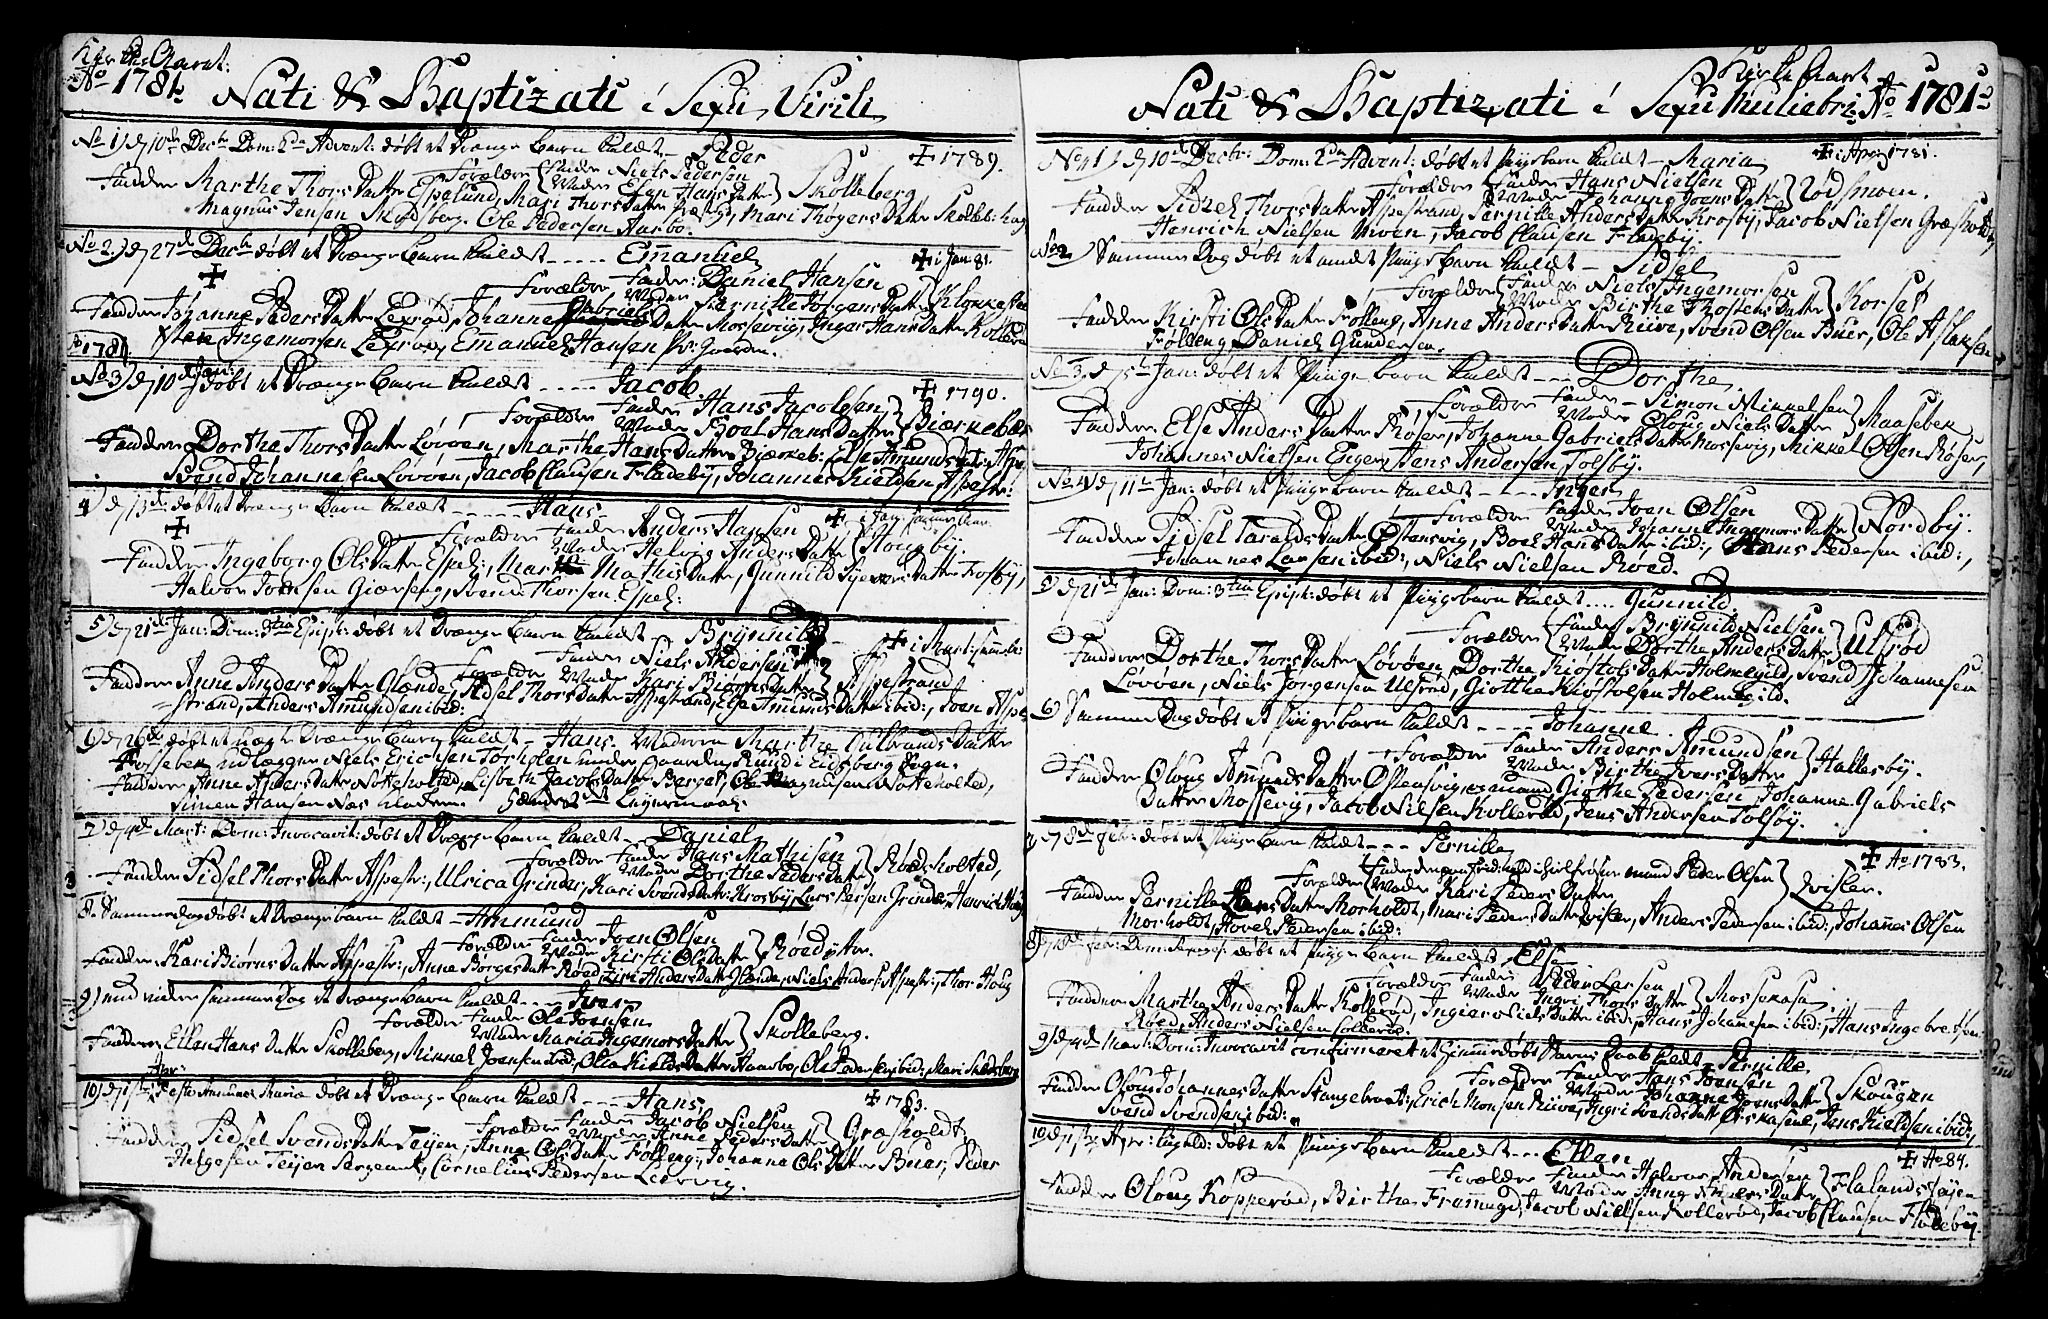 Kirke Aaret:
Ao 1781. Nati & Baptizati i Sexu Virili
No 1) d 10de Decbr Dom: 2da Advent: døbt et Drænge barn kuldet - Peder ✝ 1789.
Forældre Fader Niels Pedersen
Moder Elen Hans Datter } Skolleberg
Faddere Marthe Thors Datter Espelund, Mari Thors Datter Mari Thøgers Datter Skolleb: hag
Magnus Jensen Skodsberg, Ole Pedersen Aarbo.
No 2) d 27de Decbr døbt et Drænge barn kuldet - - - - - Emanuel ✝ i Jan: 81.
✝ Forældre Fader: Daniel Hansen
Moder Pernille Jørgens Datter } Klokke
Faddere Johanne Peders Datter Lexrød, Johanne Gabriels Datter Mossevig, Inger Hans Datter Kollerød
Ingemorsen Lexrød, Emanuel Hansen Pr: Gaarden.
Ao 1781.
No 3) d 10de Jan: døbt et Drænge barn kuldet - - - - - Jacob ✝ 1790.
Forældre Fader Hans Jacobsen
Moder Boel Hans Datter } Biærkebæk
Faddere Dorthe Thors Datter Løvøen, Marthe Hans Datter Biærkeb: Else Amunds Datt: Aspe
Svend Johannesen Løvøen, Jacob Clausen Fladeby, Johannes Kieldsen Aspestr:
4) d 13de døbt et Drænge barn kuldet - - - - - Hans ✝ i Jan:
✝ Forældre Fader Anders Hansen
Moder Helvig Anders Datter } Hougby.
Faddere Ingeborg Ols Datter Espel:, Mari Mathis Datter, Gunnild Syvers Datter Frosby,
Halvor Joensen Giærseng, Svend Thorsen Espel:
5) d 21de Jan: Dom: 3tia Epiph: døbt et Drænge barn kuldet - Brynnild - ✝ i Mart:
Forældre Fader Niels Andersen
Moder Kari Biørns Datter } Aspestrand
Faddere Anne Anders Datter Glænde, Sidsel Thors Datter Aspestrand, Else Amunds Datter ibid:, Joen Aspe
strand, Anders Amundsen ibid:
6) d 26de døbt et uægte Drænge barn kuldet - Hans. Moderen Marthe Gulbrands Datter
Fossebek udlægger Niels Erichsen Torholen under Gaarden Rund i Eidsberg Sogn.
Faddere Anne Asders Datter Nøtteholted, Lisbeth Jacobs Datter Berget, Ole Magnusen Nøtteholted,
Simen Hansen Næs Leyermaal.
7) d 4de Mart: Dom: Invocavit: døbt et Drænge barn kuldet - Daniel
Forældre Fader Hans Mathisen
Moder Dorthe Peders Datter } Rødsholted,
Faddere Sidsel Thors Datter Aspestr:, Ulrica Grinder, Kari Svends Datt: Krosby, Lars Persen Grinde, Henrich
8. Samme dag døbt et Drænge barn kuldet - Ammund
Forældre Fader Joen Olsen
Moder Kirsti Ols Datter } Røedyttr.
Faddere: Kari Biørns Datter Aspestr:, Anne Børges Datter Roed, Siri Anders Datt: Glænde, Niels Anders: Aspestr:, Thor Houg
9) end videre samme dag et Drænge barn kuldet - - - - Iver
Forældre Fader Ole Joensen
Moder Maria Ingemors Datter } Skolleberg.
Faddere Ellen Hans Datter Skolleberg, Mikkel Joensen ibid:, Olia Kields Datter Aarbo, Ole Pedersen ibid:, Mari Skodsberg
10) d 1ste Apr: Festo Annunc: Mariæ døbt et Drænge barn kuldet - - - Hans ✝ 1783.
Forældre Fader Jacob Nielsen
Moder Anne Peders Datter } Græsholdt.
Faddere Sidsel Svends Datter Teijen, Anne Ols Datter Folleng:, Johanne Ols Datter Buer, Peder
Helgesen Teijen Sergeant, Cornelius Pedersen Lervig.
Kirke Aaret
Nati & Baptizati i Sexu Muliebri. Ao 1781.
No 1) d 10de Decbr: Dom: 2da Advent: døbt et Pige barn kuldet - Maria ✝ i Apr: 1781.
Forældre Fader Hans Nielsen
Moder Johanna Joens Datter } Rødsmoen.
Faddere Sidzel Thors Datter Aspestrand, Pernille Anders Datter Krosby, Jacob Nielsen Græsholdt,
Henrich Nielsen Viven, Jacob Clausen Fladeby.
No 2) Samme Dag døbt et andet Pige barn kuldet - Sidsel
Forældre Fader Niels Ingemorsen
Moder Birthe Thostens Datter } Korset
Faddere Kirsti Ols Datter Folleng, Anne Anders Datter Riive, Svend Olsen Buer, Ole Aslaksen
Folleng, Daniel Gundersen.
No 3. d 5te Jan: døbt et Pige barn kuldet - - - Dorthe
Forældre Fader - Simon Mikkelsen
Moder Oloug Niels Datter } Maasebek
Faddere Else Anders Datter Røser, Johanne Gabriels Datter Mossevig, Mikkel Olsen Røser,
Johannes Nielsen Enger, Jens Andersen Tolsby.
No 4) d 11te Jan: døbt et Pige barn kuldet - - - - Inger
Forældre Fader Iven Olsen
Moder Johanne Ingemors Datter } Nordby.
Faddere Sidsel Taralds Datter Østensvig, Boel Hans Datter ibid:, Hans Pedersen ibid:,
Johannes Larsen ibid:, Niels Nielsen Roed.
5) d 21de Jan: Dom: 3tia Epiph: døbt et Pige barn kuldet - - - - Gunnild.
Forældre Fader Brynnild Nielsen
Moder Dorthe Anders Datter } Ulsrød
Faddere Dorthe Thors Datter Løvøen, Dorthe Kiostols Datter Holmegild, Svend Johannesen
Løvøen, Niels Jørgensen Ulsrød, Giotthe Kiostolsen Holmegild.
6) Samme Dag døbt et Pige barn kuldet - - - - Johanne.
Forældre Fader Anders Amundsen
Moder Birthe Ivers Datter } Hallesby.
Faddere Oloug Amunds Datter Østensvig, Giotthe Pedersen, Johanne Gabriels
Datter Mossevig, Jacob Nielsen Kollerød, Jens Andersen Tolsby.
7) d 8de Febr: døbt et Pige barn kuldet - - - Pernille ✝ Ao 1783.
Forældre Fader mand Peder Olsen
Moder Kari Peders Datter } Qvisler.
Faddere Pernille Hans Datter Morholdt, Mari Peders Datter Qvisler, Anders Pedersen ibid:, Johannes Olsen
Morholdt, Hovel Pedersen ibid:
8) d Febr: Dom: døbt et Pige barn kuldet Else
Forældre Fader Peder Larsen
Moder Ingri Thors Datter } Mossekasa
Faddere Marthe Anders Datter Kollerød, Ingier Niels Datter ibid:, Hans Johansen ibid:, Hans Ingebretsen
Røed, Anders Nielsen Kollerød.
9) d 4de Mart: Dom: Invocavit confirmeret et hiemmedøbt Barns daab kuldet - Pernille
Forældre Fader Hans Joensen
Moder Johanne Joens Datter } Skougen
Faddere Oloug Johannes Datter Stangebraat:, Erich Monsen Riive, Ingri Svends Datt: Øiskasene, Jens Kieldsen ibid:,
Svend Svendsen ibid:
10) d 1ste Apr: døbt et Pige barn kuldet - - - Ellen ✝ Ao 84.
Forældre Fader Halvor Andersen
Moder Anne Niels Datter } Flaland Teijen
Faddere Oloug Kopperød, Birthe Frønnegd, Jacob Nielsen Kollerød, Jacob Clausen Fladebÿ.